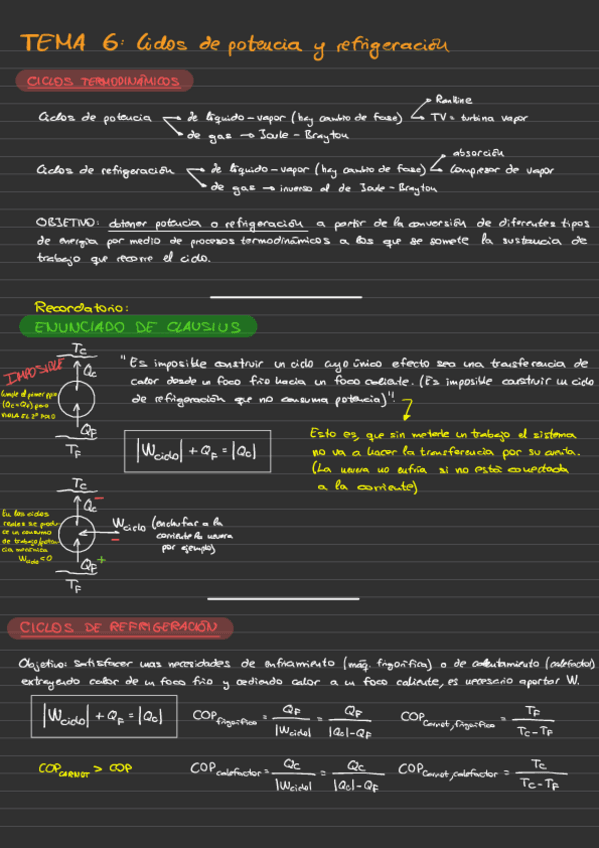 TEMA 6: Ciclos de potencia y refrigeración
CICLOS TERMODINÁMICOS
Rankine
Ciclos de potencia de líquido-vapor (hay cambio de fase) TV = turbina vapor
de gas → Joule-Brayton
absorción
Ciclos de refrigeración de líquido-vapor (hay cambio de fase) Compresor de vapor
de gas → inverso al de Joule-Brayton
OBJETIVO: obtener potencia o refrigeración a partir de la conversión de diferentes tipos
de energía por medio de procesos termodinámicos a los que se somete la sustancia de
trabajo que recorre el ciclo.
Recordatorio:
ENUNCIADO DE CLAUSIUS
IMPOSIBLE
Tc
Qc
Cumple el primer ppio
(Qc=QF) pero
VIOLA EL 2º PPIO
QF
TF
"Es imposible construir un ciclo cuyo único efecto sea una transferencia de
calor desde un foco frío hacia un foco caliente. (Es imposible construir un ciclo
de refrigeración que no consuma potencia)".
|Wciclo| + QF = |Qc|
Esto es, que sin meterle un trabajo el sistema
no va a hacer la transferencia por su cuenta.
(La nevera no enfría si no está conectada
a la corriente)
Tc
Qc -
En los ciclos
reales se produ-
ce un consumo
de trabajo/poten-
cia mecánica
Wciclo<0
Wciclo (enchufar a la
corriente la nevera
por ejemplo)
-
QF +
TF
CICLOS DE REFRIGERACIÓN
Objetivo: satisfacer unas necesidades de enfriamiento (máq. frigorífica) o de calentamiento (calefactor)
extrayendo calor de un foco frío y cediendo calor a un foco caliente, es necesario aportar W.
|Wciclo| + QF = |Qc|
COPfrigorífico = QF / |Wciclo| = QF / |Qc|-QF
COPCarnot, frigorífico = TF / Tc-TF
COPCARNOT > COP
COPcalefactor = Qc / |Wciclo| = Qc / |Qc|-QF
COPCarnot, calefactor = Tc / Tc-TF